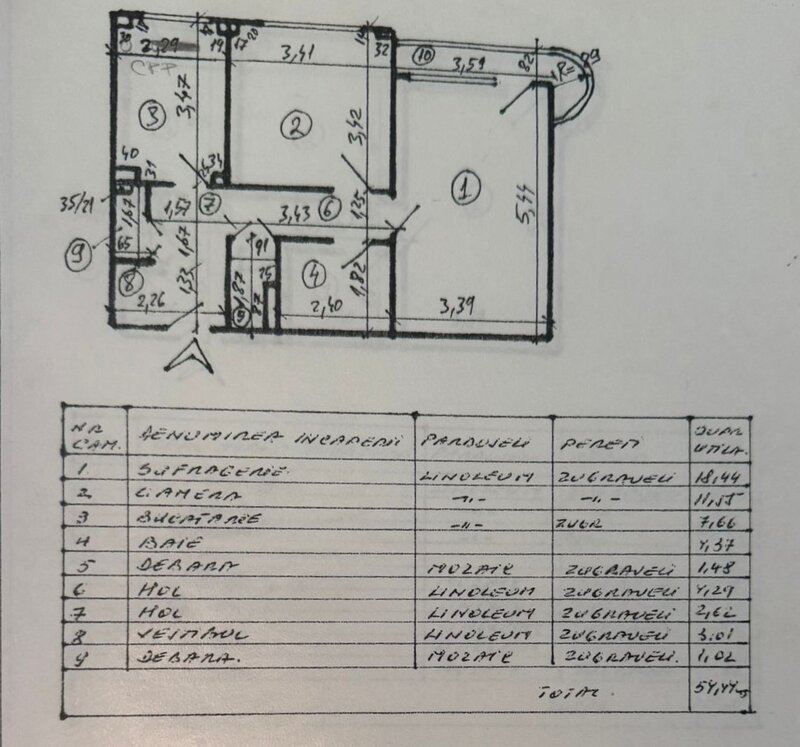 2,29
19
17
20
3,41
14
32
10
3,59
82
CPP
3,47
3
2
3,42
1
5,44
40
31
34
35/21
1,67
1,57
7
3,43
6
1,25
9
65
1,67
91
8
1,33
1,87
25
4
1,82
2,26
5
87
2,40
3,39
NR CAM. DENUMIREA INCAPERII PARDOSELI PERETI SUPR UTILA.
1 SUFRAGERIE LINOLEUM ZUGRAVELI 18,44
2 CAMERA -"- -"- 11,55
3 BUCATARIE -"- ZUGR 7,66
4 BAIE 4,37
5 DEBARA MOZAIC ZUGRAVELI 1,48
6 HOL LINOLEUM ZUGRAVELI 4,29
7 HOL LINOLEUM ZUGRAVELI 2,62
8 VESTIBUL LINOLEUM ZUGRAVELI 3,01
9 DEBARA. MOZAIC ZUGRAVELI. 1,02
TOTAL 54,44